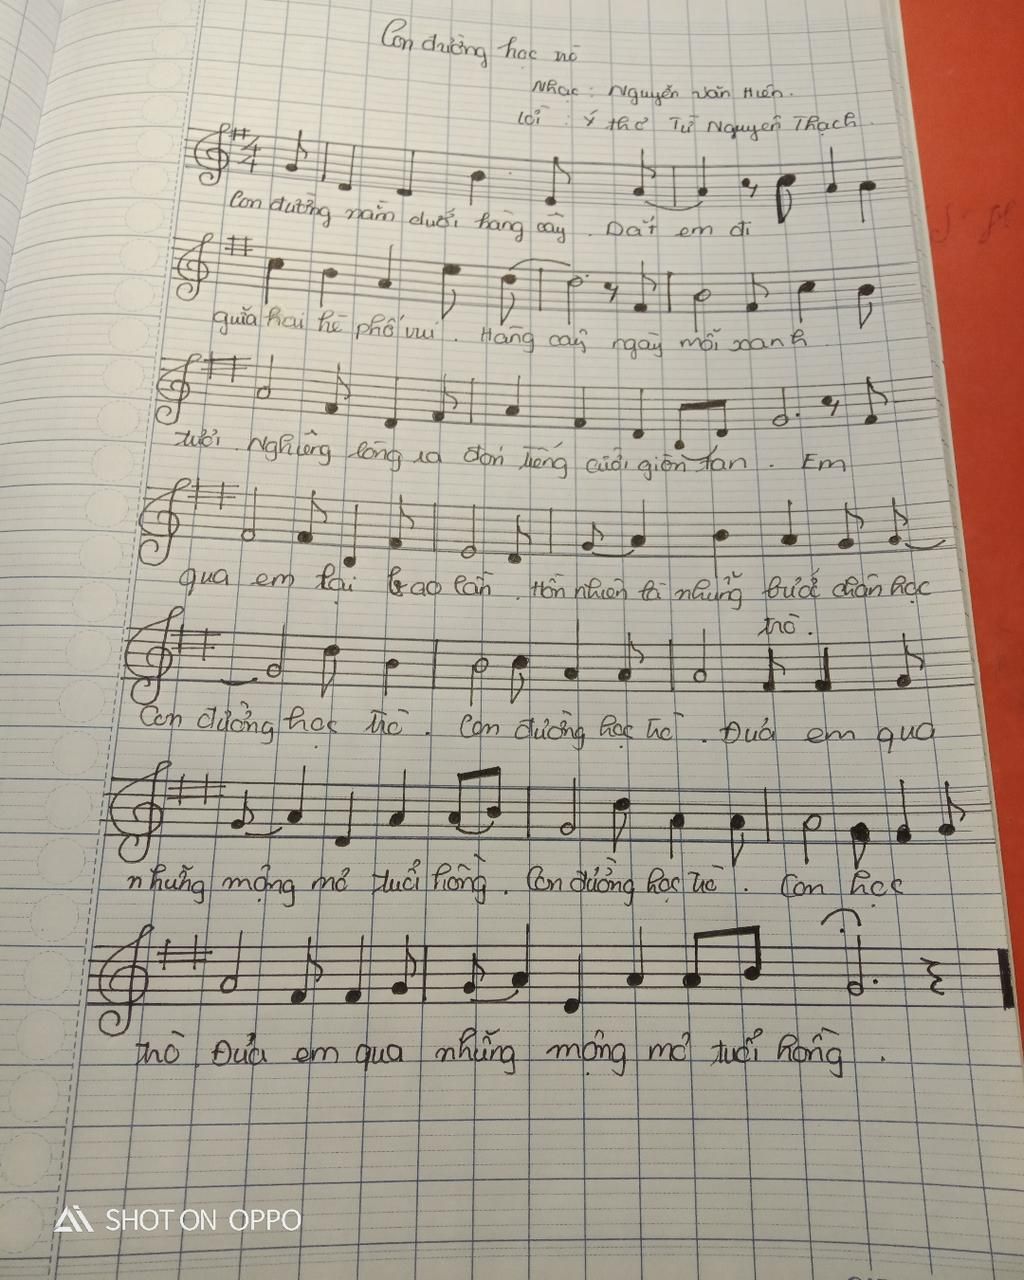 Con đường học trò
Nhạc: Nguyễn Văn Hiên.
Lời: Ý thơ Từ Nguyên Thạch
4
4
Con đường nằm dưới hàng cây. Dắt em đi
giữa hai hè phố vui. Hàng cây ngày mỗi xanh
tươi. Nghiêng lòng ra đón tiếng cười giòn tan. Em
qua em lại bao lần. Hồn nhiên là những bước chân học
trò.
Con đường học trò. Con đường học trò. Đưa em qua
những mộng mơ tuổi hồng. Con đường học trò. Con học
trò. Đưa em qua những mộng mơ tuổi hồng.
SHOT ON OPPO